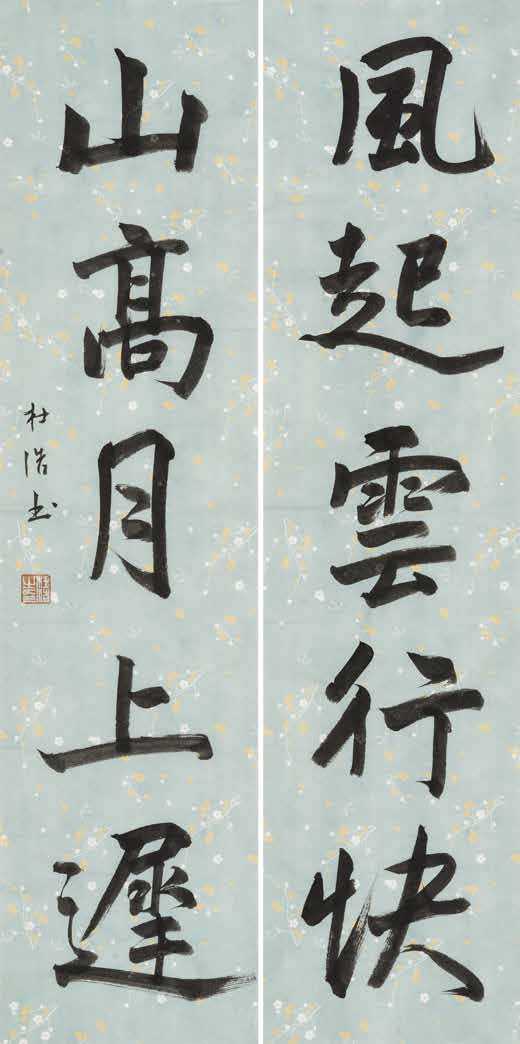 風起雲行快
山高月上遲
杜浩書